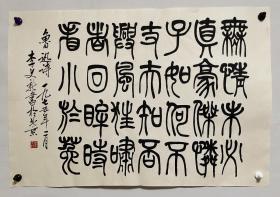 無情未必
真豪傑憐
子如何不
丈夫知否
興風狂嘯
者回眸時
看小於菟
魯迅詩 一九七五年二月
李 書於北京